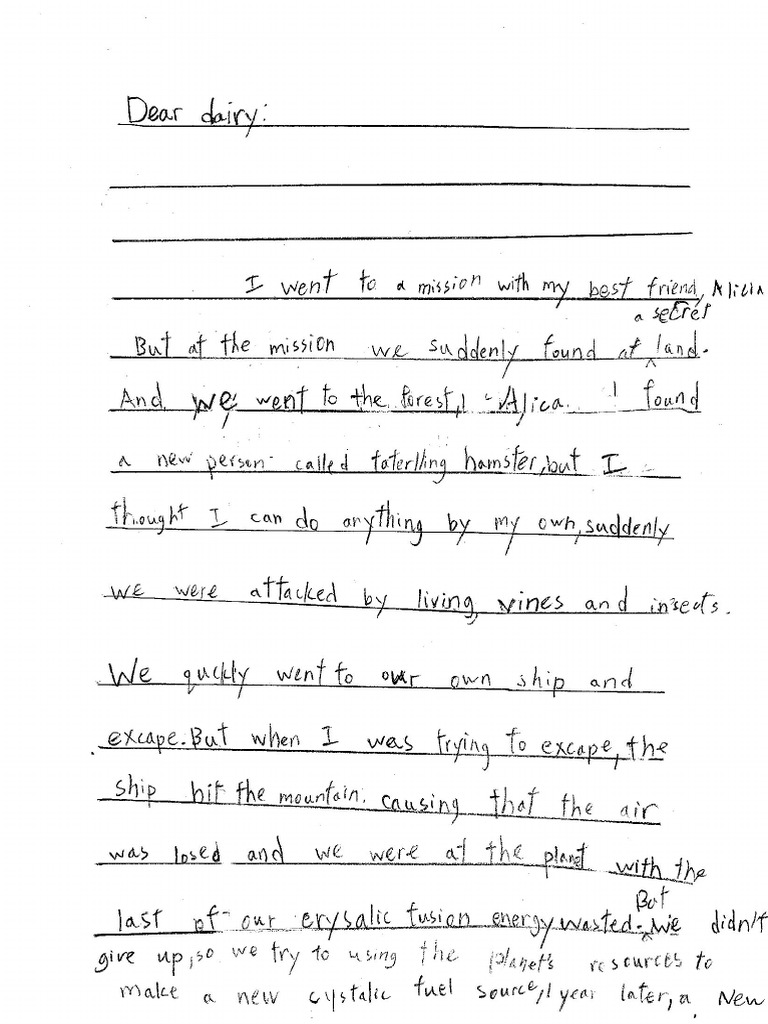 Dear dairy:
I went to a mission with my best friend, Alicia
But at the mission we suddenly found at a secret land.
And we went to the forest, Alica. I found
a new person called taterlling hamster, but I
thought I can do anything by my own, suddenly
we were attacked by living vines and insects.
We quckly went to our own ship and
excape. But when I was trying to excape, the
ship hit the mountain. causing that the air
was losed and we were at the planet with the
last of our crysalic fusion energy wasted. But we didn't
give up, so we try to using the planet's resources to
make a new cystalic fuel source, 1 year later, a New